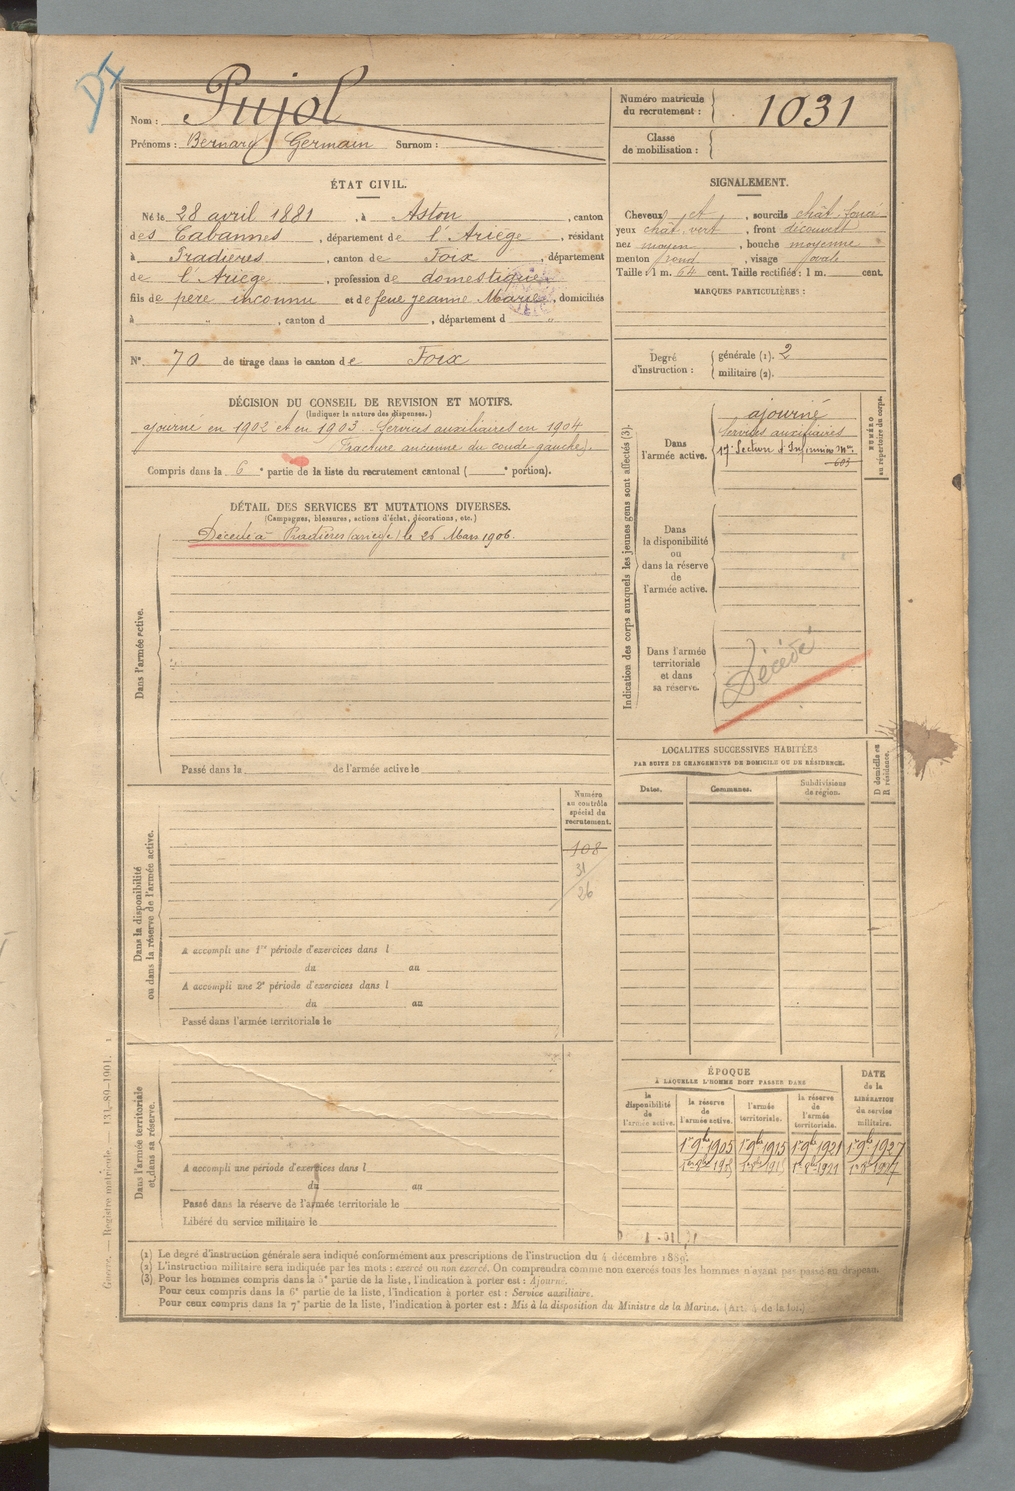 DI
Nom : Pujol
Prénoms : Bernard Germain Surnom :
Numéro matricule
du recrutement : 1031
Classe
de mobilisation :
ÉTAT CIVIL.
Né le 28 avril 1881, à Aston, canton
des Cabannes, département de l'Ariège, résidant
à Pradières, canton de Foix, département
de l'Ariège, profession de domestique
fils de père inconnu et de feue Jeanne Marie, domiciliés
à „, canton d, département d „
SIGNALEMENT.
Cheveux ct, sourcils chât foncé
yeux chât. vert, front découvert
nez moyen, bouche moyenne
menton rond, visage ovale
Taille : 1 m. 64 cent. Taille rectifiée : 1 m. cent.
MARQUES PARTICULIÈRES :
N° 70 de tirage dans le canton de Foix
Degré
d'instruction :
générale (1). 2
militaire (2).
DÉCISION DU CONSEIL DE REVISION ET MOTIFS.
(Indiquer la nature des dispenses.)
ajourné en 1902 et en 1903. Services auxiliaires en 1904
(Fracture ancienne du coude gauche).
Compris dans la 6e partie de la liste du recrutement cantonal (e portion).
DÉTAIL DES SERVICES ET MUTATIONS DIVERSES.
(Campagnes, blessures, actions d'éclat, décorations, etc.)
Décédé à Pradières (ariège) le 26 Mars 1906.
Dans l'armée active.
Passé dans la de l'armée active le
Indication des corps auxquels les jeunes gens sont affectés (3).
NUMÉRO
au répertoire du corps.
Dans
l'armée active.
ajourné
Services auxiliaires
17e Section d'Infirmiers Mres
603
Dans
la disponibilité
ou
dans la réserve
de
l'armée active.
Dans l'armée
territoriale
et dans
sa réserve.
Décédé
LOCALITES SUCCESSIVES HABITÉES
PAR SUITE DE CHANGEMENTS DE DOMICILE OU DE RÉSIDENCE.
Dates.
Communes.
Subdivisions
de région.
D domicile ou
R résidence.
Numéro
au contrôle
spécial du
recrutement.
108
31
26
Dans la disponibilité
ou dans la réserve de l'armée active.
A accompli une 1re période d'exercices dans l
du au
A accompli une 2e période d'exercices dans l
du au
Passé dans l'armée territoriale le
Dans l'armée territoriale
et dans sa réserve.
A accompli une période d'exercices dans l
du au
Passé dans la réserve de l'armée territoriale le
Libéré du service militaire le
ÉPOQUE
À LAQUELLE L'HOMME DOIT PASSER DANS
DATE
de la
LIBÉRATION
du service
militaire.
la
disponibilité
de
l'armée active.
la réserve
de
l'armée active.
l'armée
territoriale.
la réserve
de
l'armée
territoriale.
1er 9bre 1905 1er 9bre 1915 1er 9bre 1921 1er 9bre 1927
(1) Le degré d'instruction générale sera indiqué conformément aux prescriptions de l'instruction du 4 décembre 1889.
(2) L'instruction militaire sera indiquée par les mots : exercé ou non exercé. On comprendra comme non exercés tous les hommes n'ayant pas passé au drapeau.
(3) Pour les hommes compris dans la 5e partie de la liste, l'indication à porter est : Ajourné.
Pour ceux compris dans la 6e partie de la liste, l'indication à porter est : Service auxiliaire.
Pour ceux compris dans la 7e partie de la liste, l'indication à porter est : Mis à la disposition du Ministre de la Marine. (Art. 4 de la loi.)
Guerre. — Registre matricule. — 131-89-1901.